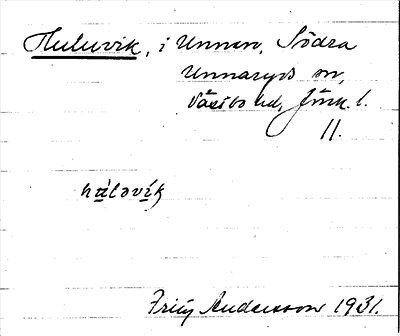 Huluvik, i Unnen, Södra
Unnaryds sn,
Västbo hd, Jönk. l.
11.
hàləvík
Fritz Andersson 1931.